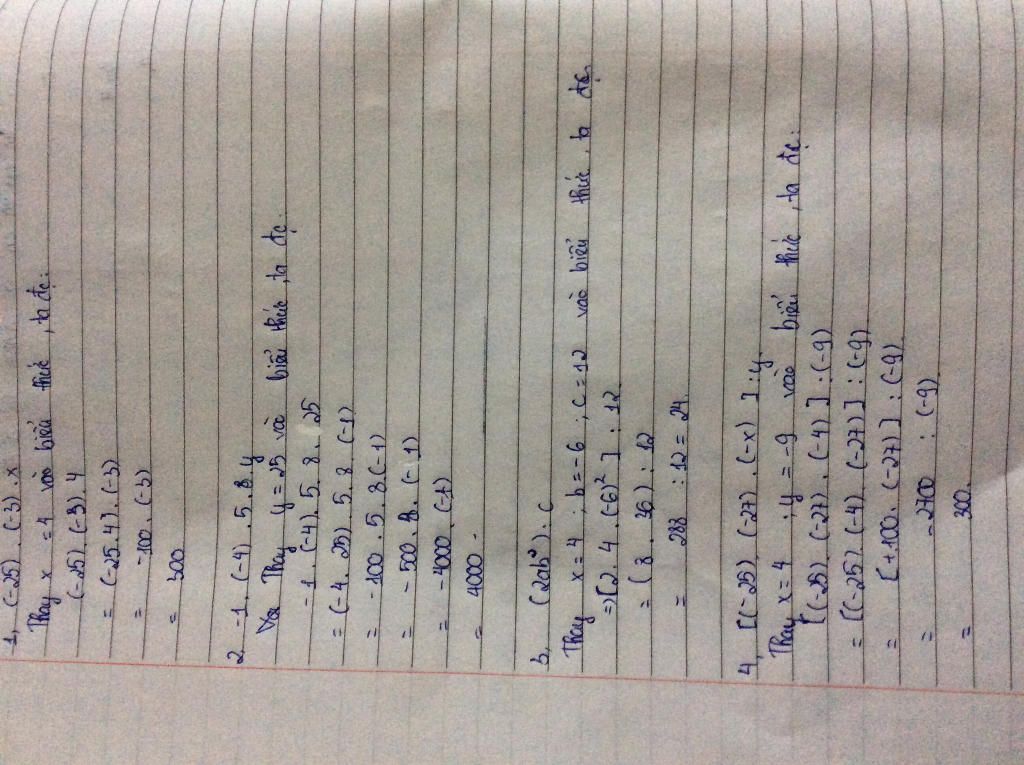 1, (-25) . (-3) . x
Thay x = 4 vào biểu thức, ta đc:
(-25) . (-3) . 4
= (-25 . 4] . (-3)
= -100 . (-3)
= 300
2. -1 . (-4) . 5 . 8 . y
Thay y = 25 và biểu thức, ta đc.
-1 . (-4) . 5 . 8 . 25
= (-4 . 25) . 5 . 8 . (-1)
= -100 . 5 . 8 (-1)
= -500 . 8 . (-1)
= -4000 . (-1)
= 4000 .
3, (2ab²) : c
Thay x = 4 ; b = -6 ; c = 12 vào biểu thức, ta đc,
=> [2 . 4 . (-6)² ] : 12
= (8 . 36) : 12
= 288 : 12 = 24
4, [(-25) . (-27) . (-x) ] : y.
Thay x = 4 ; y = -9 vào biểu thức, ta đc:
[(-25) . (-27) . (-4) ] : (-9)
= [(-25) . (-4) . (-27)] : (-9)
= [+100 . (-27)] : (-9)
= -2700 : (-9)
= 300.